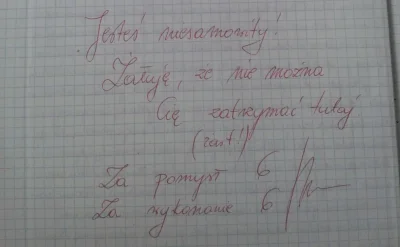 Jesteś niesamowity!
Żałuję, że nie można
Cię zatrzymać tutaj
(żart!)
Za pomysł 6
Za wykonanie 6